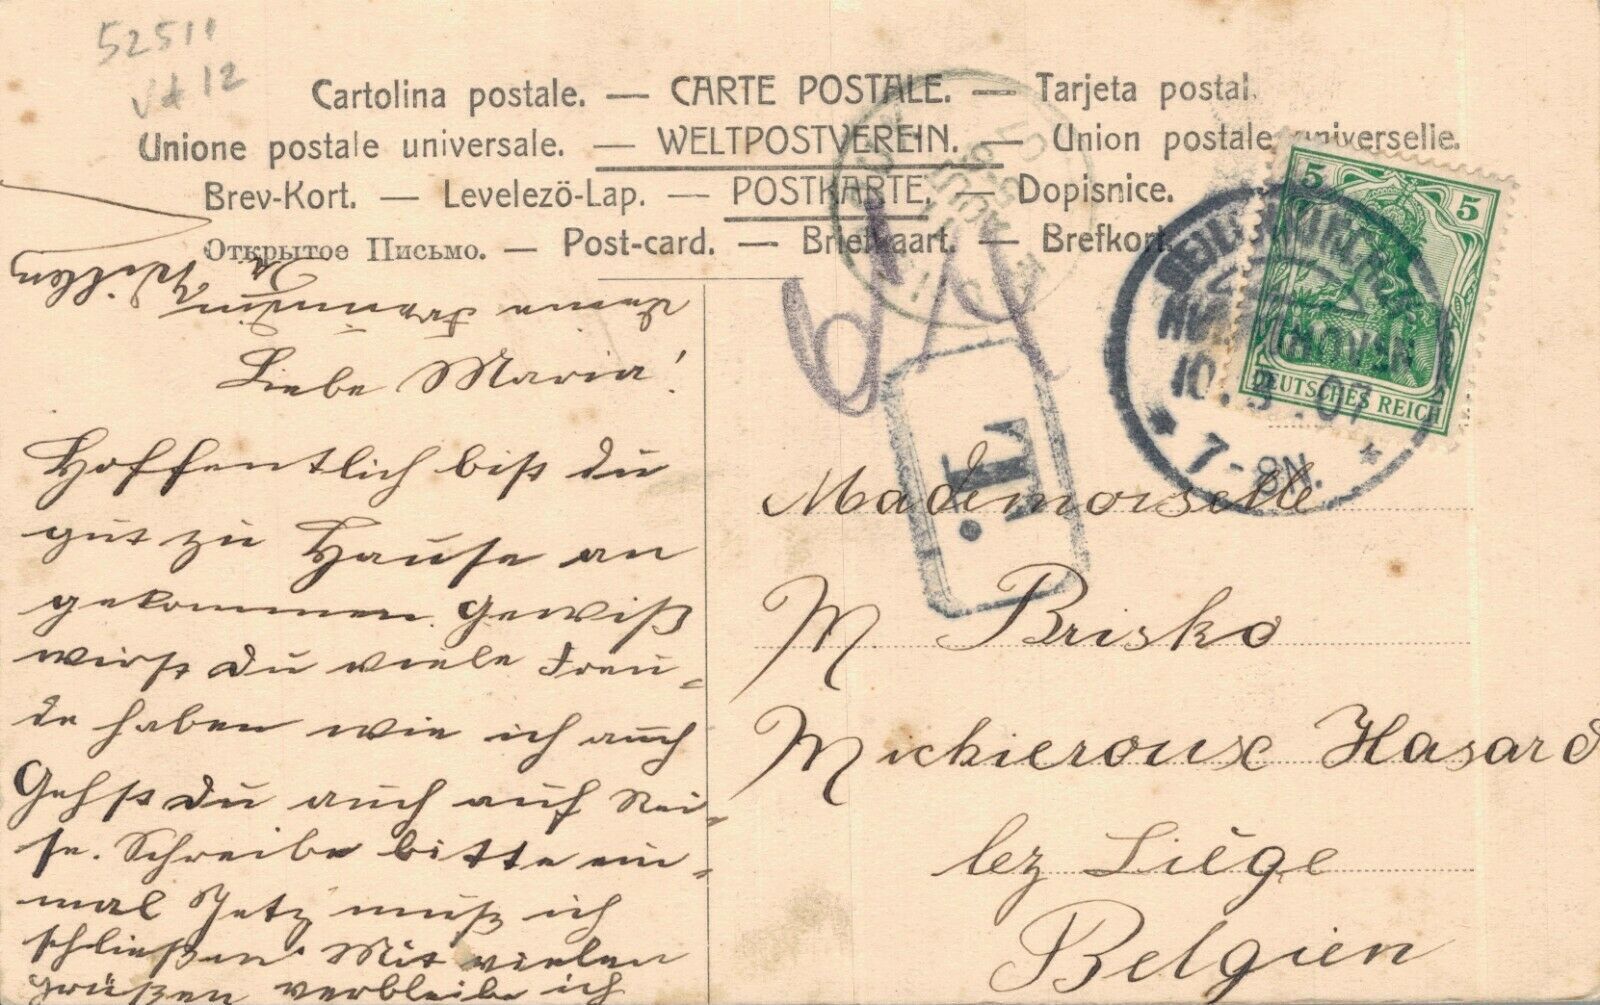 52511
Vd 12
Cartolina postale. — CARTE POSTALE. — Tarjeta postal.
Unione postale universale. — WELTPOSTVEREIN. — Union postale universelle.
Brev-Kort. — Levelezö-Lap. — POSTKARTE. — Dopisnice.
Открытое Письмо. — Post-card. — Briefkaart. — Brefkort.
5 5
DEUTSCHES REICH
10.3.07
7-8N.
T.
Liebe Maria!
Hoffentlich bist du
gut zu Hause an
gekommen. Gewiß
wirst du viele Freu-
de haben wie ich auch
Gehst du auch auf Rei-
se. Schreibe bitte ein-
mal Jetz muß ich
schließen. Mit vielen
grüßen verbleibe ich
deine Freundin
Mademoiselle
M. Brisko
Mickieroux Hasard
lez Liège
Belgien